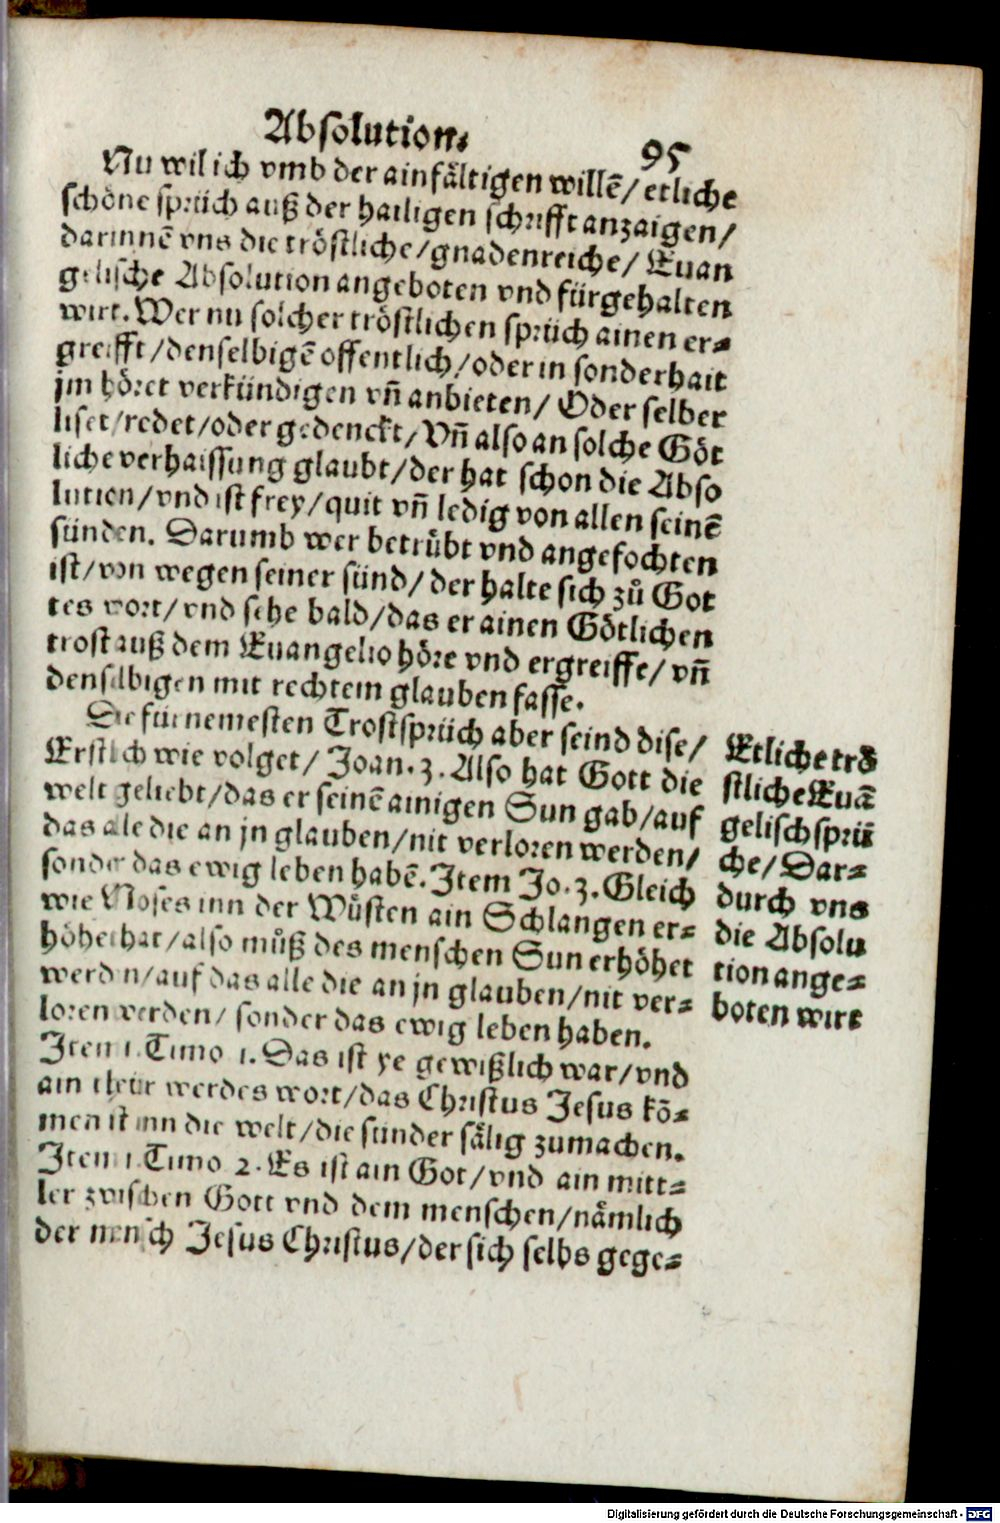 Absolution.
95
Nu wil ich vmb der ainfältigen willē/ etliche
schöne sprüch auß der hailigen schrifft anzaigen/
darinnē vns die tröstliche/gnadenreiche/ Euan
gelische Absolution angeboten vnd fürgehalten
wirt. Wer nu solcher tröstlichen sprüch ainen er⸗
greifft/denselbigē offentlich/oder in sonderhait
jm höret verkündigen vñ anbieten/ Oder selber
liset/redet/oder gedenckt/ Vñ also an solche Göt
liche verhaissung glaubt/der hat schon die Abso
lution/vnd ist frey/quit vñ ledig von allen seinē
sünden. Darumb wer betrübt vnd angefochten
ist/von wegen seiner sünd/ der halte sich zů Got
tes wort/vnd sehe bald/das er ainen Götlichen
trost auß dem Euangelio höre vnd ergreiffe/ vñ
denselbigen mit rechtem glauben fasse.
Die fürnemesten Trostsprüch aber seind dise/
Erstlich wie volget/ Joan. 3. Also hat Gott die
welt geliebt/das er seinē ainigen Sun gab/auf
das alle die an jn glauben/nit verloren werden/
sonder das ewig leben habē. Item Jo. 3. Gleich
wie Moses inn der Wüsten ain Schlangen er⸗
höhet hat/also můß des menschen Sun erhöhet
werden/auf das alle die an jn glauben/nit ver⸗
loren werden/ sonder das ewig leben haben.
Item 1. Timo 1. Das ist ye gewißlich war/vnd
ain theür werdes wort/das Christus Jesus kō⸗
men ist inn die welt/die sünder sälig zumachen.
Item 1. Timo 2. Es ist ain Got/vnd ain mitt⸗
ler zwischen Gott vnd dem menschen/nämlich
der mensch Jesus Christus/der sich selbs gege⸗
Etliche trö
stliche Euā
gelisch sprü
che/ Dar⸗
durch vns
die Absolu
tion ange⸗
boten wirt
Digitalisierung gefördert durch die Deutsche Forschungsgemeinschaft - DFG